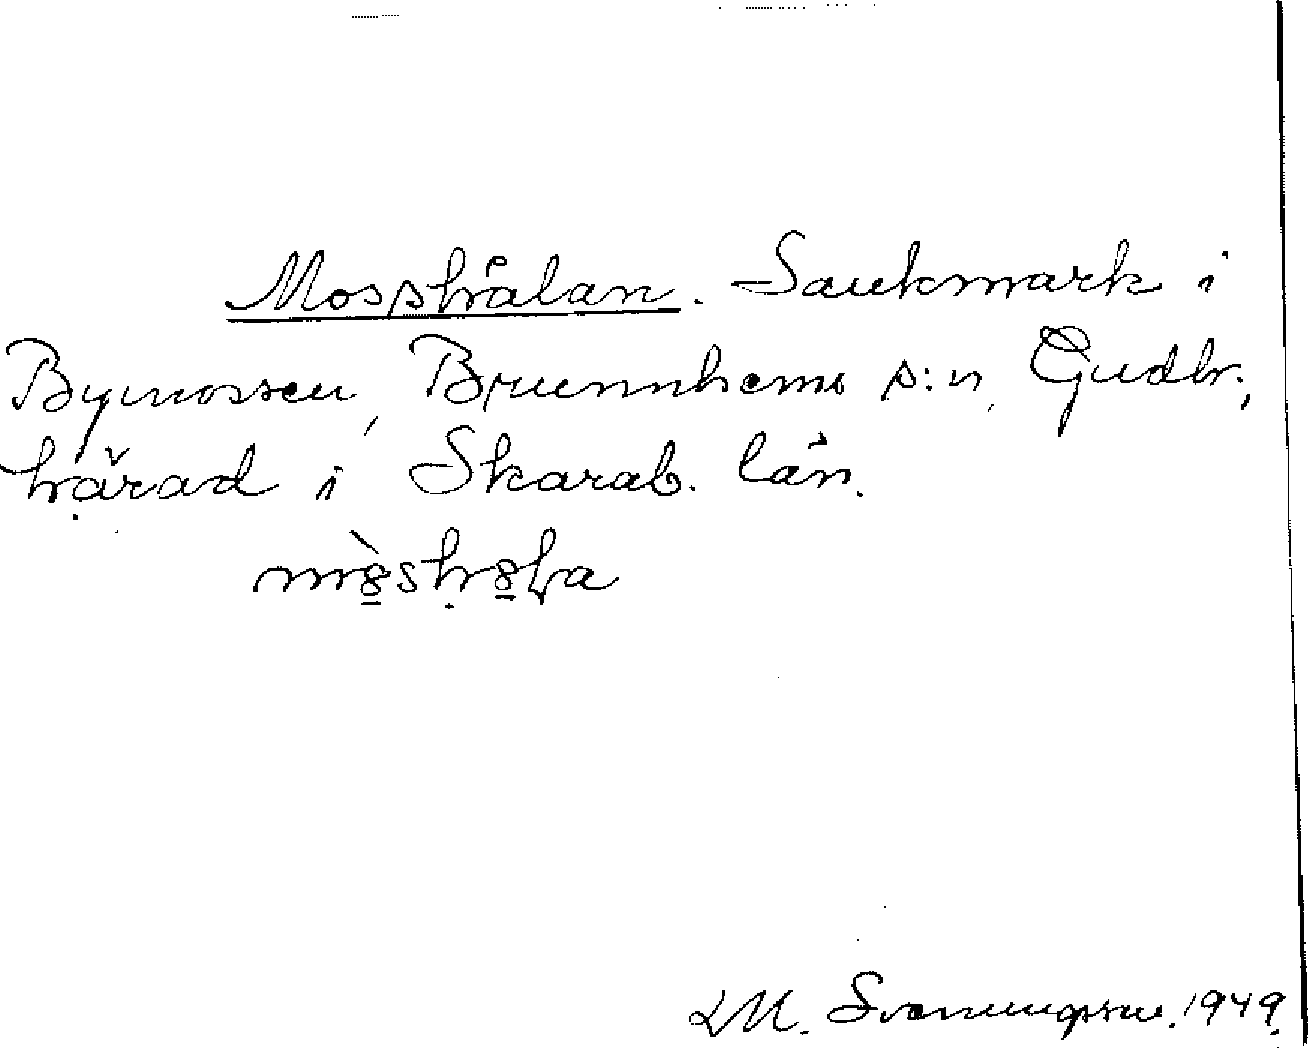 Mosshålan. Sankmark i
Bymossen, Brunnhems s:n, Gudh.
härad i Skarab. län.
L M. Svenungsson. 1949.